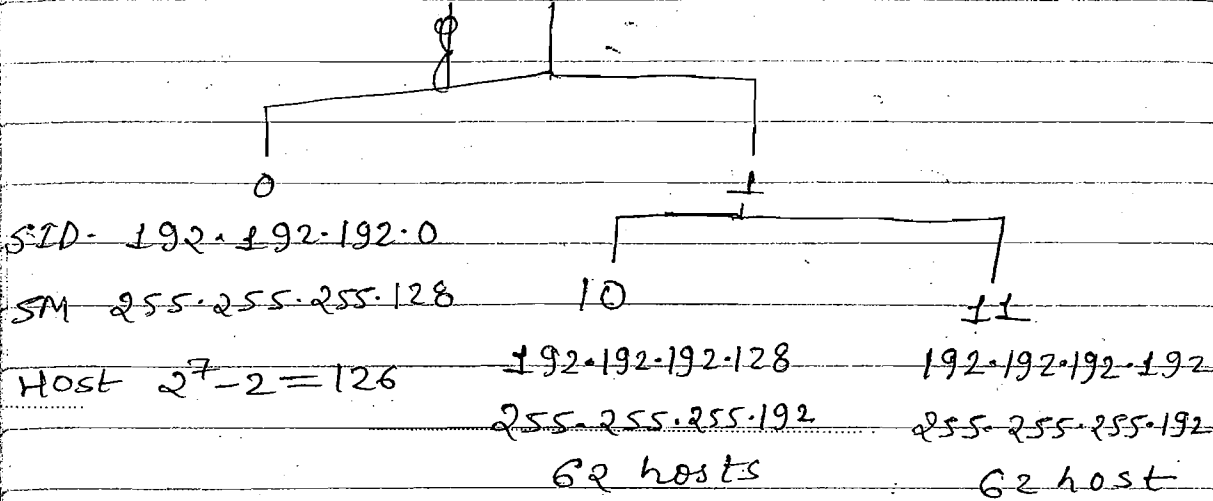 0 1
SID- 192.192.192.0
SM 255.255.255.128
Host 2⁷-2=126
10
192.192.192.128
255.255.255.192
62 hosts
11
192.192.192.192
255.255.255.192
62 host